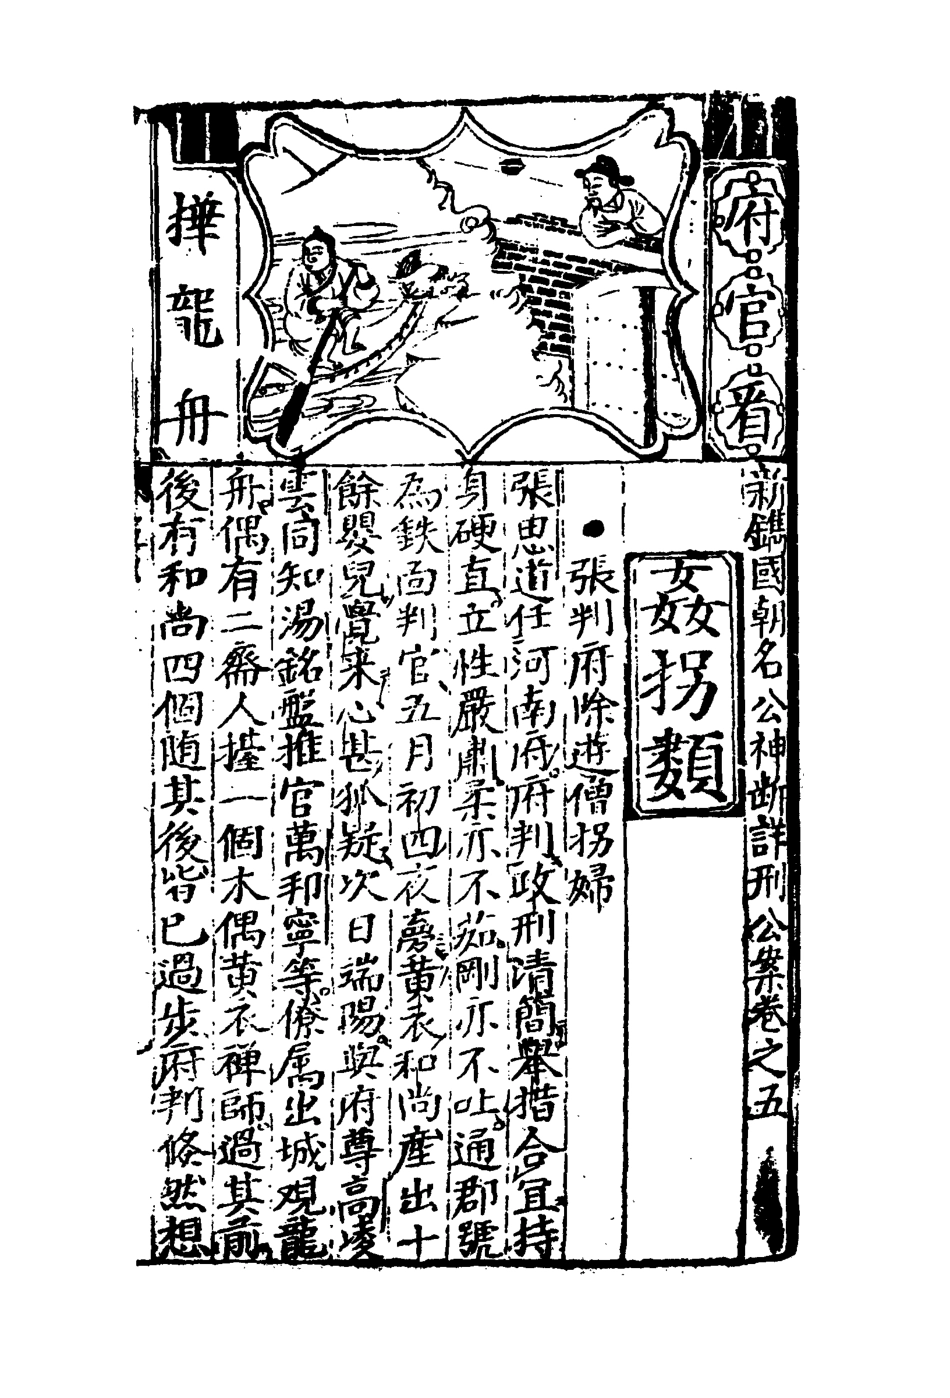 府官看
撶龍舟
新鐫國朝名公神断詳刑公案卷之五
姦拐類
張判府除遊僧拐婦
張思道任河南府府判政刑清簡舉措合宜持
身硬直立性嚴肅柔亦不茹剛亦不吐通郡號
為鉄面判官五月初四夜夢黄衣和尚産出十
餘嬰兒覺来心甚狐疑次日端陽與府尊高崚
雲同知湯銘盤推官萬邦寧等僚属出城观龍
舟偶有二齋人擡一個木偶黄衣禅師過其前
後有和尚四個随其後皆已過步府判倐然想